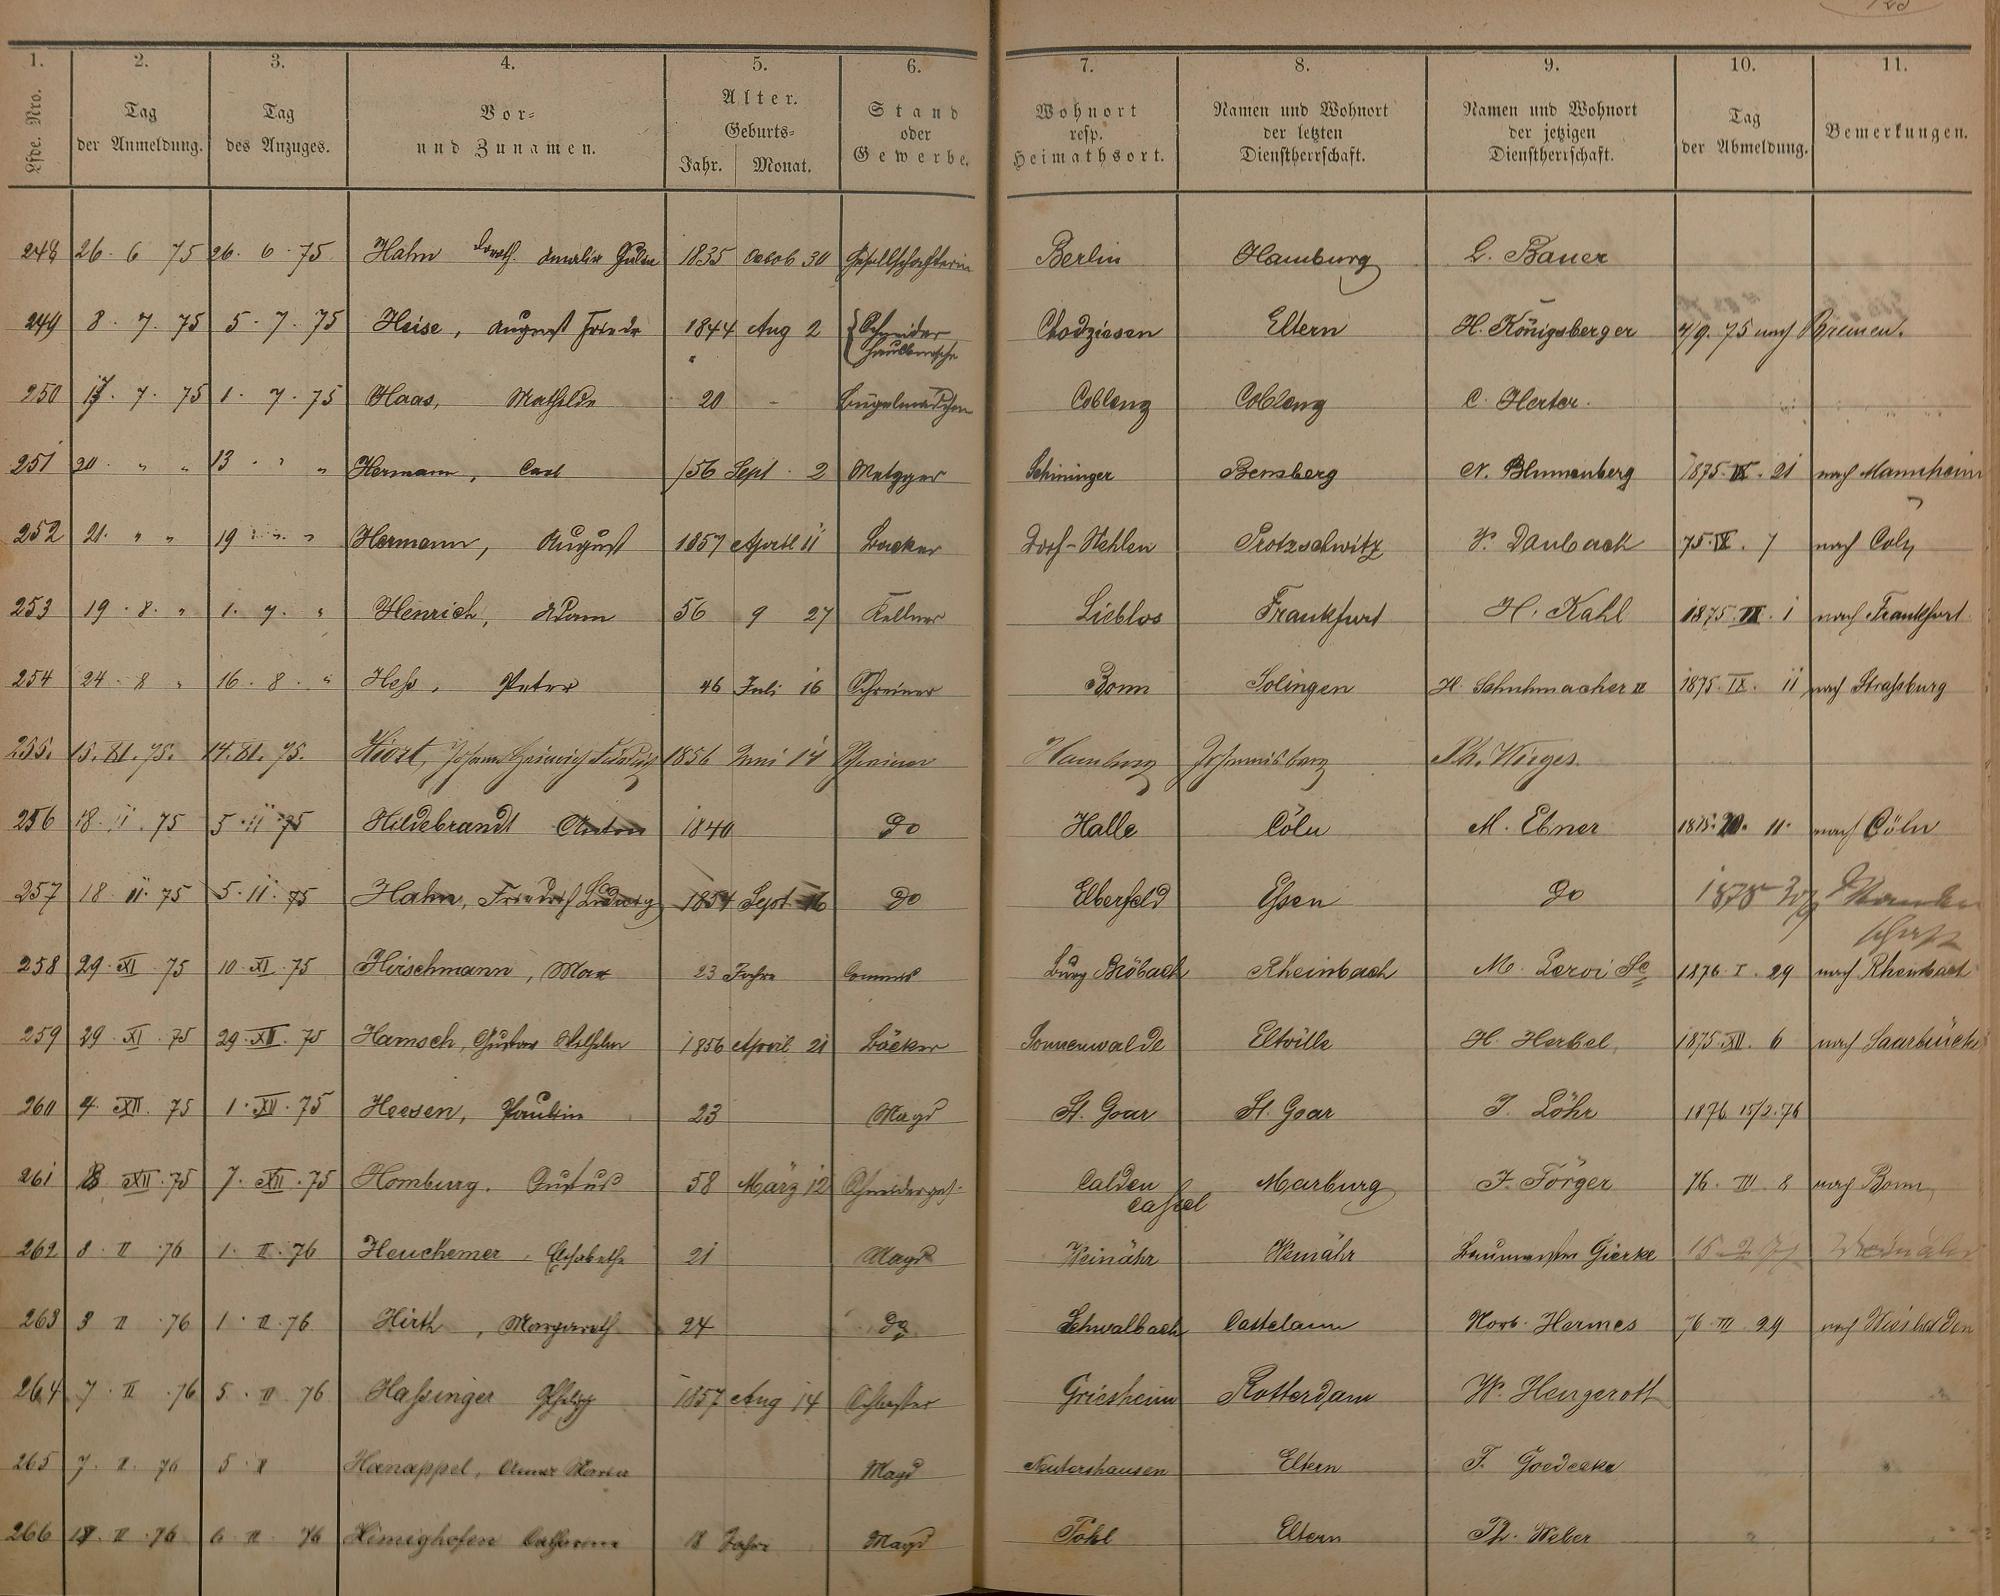 1. 2. 3. 4. 5. 6. 7. 8. 9. 10. 11.
Lfde. Nro. Tag der Anmeldung. Tag des Anzuges. Vor- und Zunamen. Alter. Geburts- Jahr. Monat. Stand oder Gewerbe. Wohnort resp. Heimathsort. Namen und Wohnort der letzten Dienstherrschaft. Namen und Wohnort der jetzigen Dienstherrschaft. Tag der Abmeldung. Bemerkungen.
248 26. 6 75 26. 6. 75 Hahn Doroth. Amalie 1835 Octob 30 Gesellschafterin Berlin Hamburg L. Bauer
249 8. 7. 75 5. 7. 75 Heise, August 1844 Aug 2 Schneider Chodziesen Eltern H. Königsberger 4/9. 75 nach Bremen.
250 17. 7. 75 1. 7. 75 Haas, Mathilde 20 - Bügelmädchen Coblenz Coblenz C. Herter.
251 20. " " 13 . " " Hermann, Carl 56 Sept. 2 Metzger Schininger Bensberg N. Blumenberg 1875. IX. 21 nach Mannheim
252 21. " " 19 " " Hermann, August 1857 April 11 Backer Dorf-Wehlen Protzschwitz P. Daubach 75. IX. 7 nach Coln
253 19. 8. " 1. 7. " Henrich, Adam 56 9 27 Kellner Lieblos Frankfurt H. Kahl 1875. IX. 1 nach Frankfurt
254 24. 8 " 16. 8. " Heß, Peter 46 Juli 16 Schreiner Bonn Solingen H. Schuhmacher II 1875. IX. 11 nach Straßburg
255. 15. XI. 75. 14. XI. 75. Hiort, Johann Heinrich 1856 Juni 14 Schreiner Hamburg Johannisberg Ph. Wirges
256 18. 11. 75 5. 11 75 Hildebrandt Anton 1840 Do Halle Cöln M. Ebner 1875. 11. nach Cöln
257 18 11. 75 5. 11. 75 Hahn, Friedrich Ludwig 1854 Sept 16 Do Elberfeld Essen Do Wander
schaft
258 29. XI. 75 10. XI. 75 Hirschmann, Max 23 Jahre Commis Burg Bröbach Rheinbach M. Leroi Se 1876. I. 29 nach Rheinbach
259 29. XI. 75 29. XII. 75 Hamsch, Gustav Wilhelm 1856 April 21 Bäcker Sonnenwalde Eltville H. Herbel 1875. XII. 6 nach Saarbrücke
260 4. XII. 75 1. XII. 75 Heesen, Paulin 23 Magd St. Goar St. Goar J. Löhr 1876 15/2. 76
261 8 XII. 75 7. XII. 75 Homburg. Justus 58 März 12 Schneiderges. Calden Cassel Marburg J. Förger 76. III. 8 nach Bonn
262 8. II 76 1. II. 76 Heuchemer, Elisabethe 21 Magd Weinähr Weinähr Baumeister Gierke 15 2 77 Weinähr
263 3 II .76 1. II. 76 Hirth, Margareth 24 do Schwalbach Castelaun Norb. Hermes 76. III. 29 nach Wiesbaden
264 7. II .76 5. II 76 Haßinger Philipp 1857 Aug 14 Schlosser Griesheim Rotterdam W. Hengeroth
265 7. II. 76 5. II Hanappel, Anna Maria Magd Neutershausen Eltern F. Goedecke
266 17. II .76 6 II 76 Himighofen Catharina 18 Jahre Magd Pohl Eltern Ph. Weber